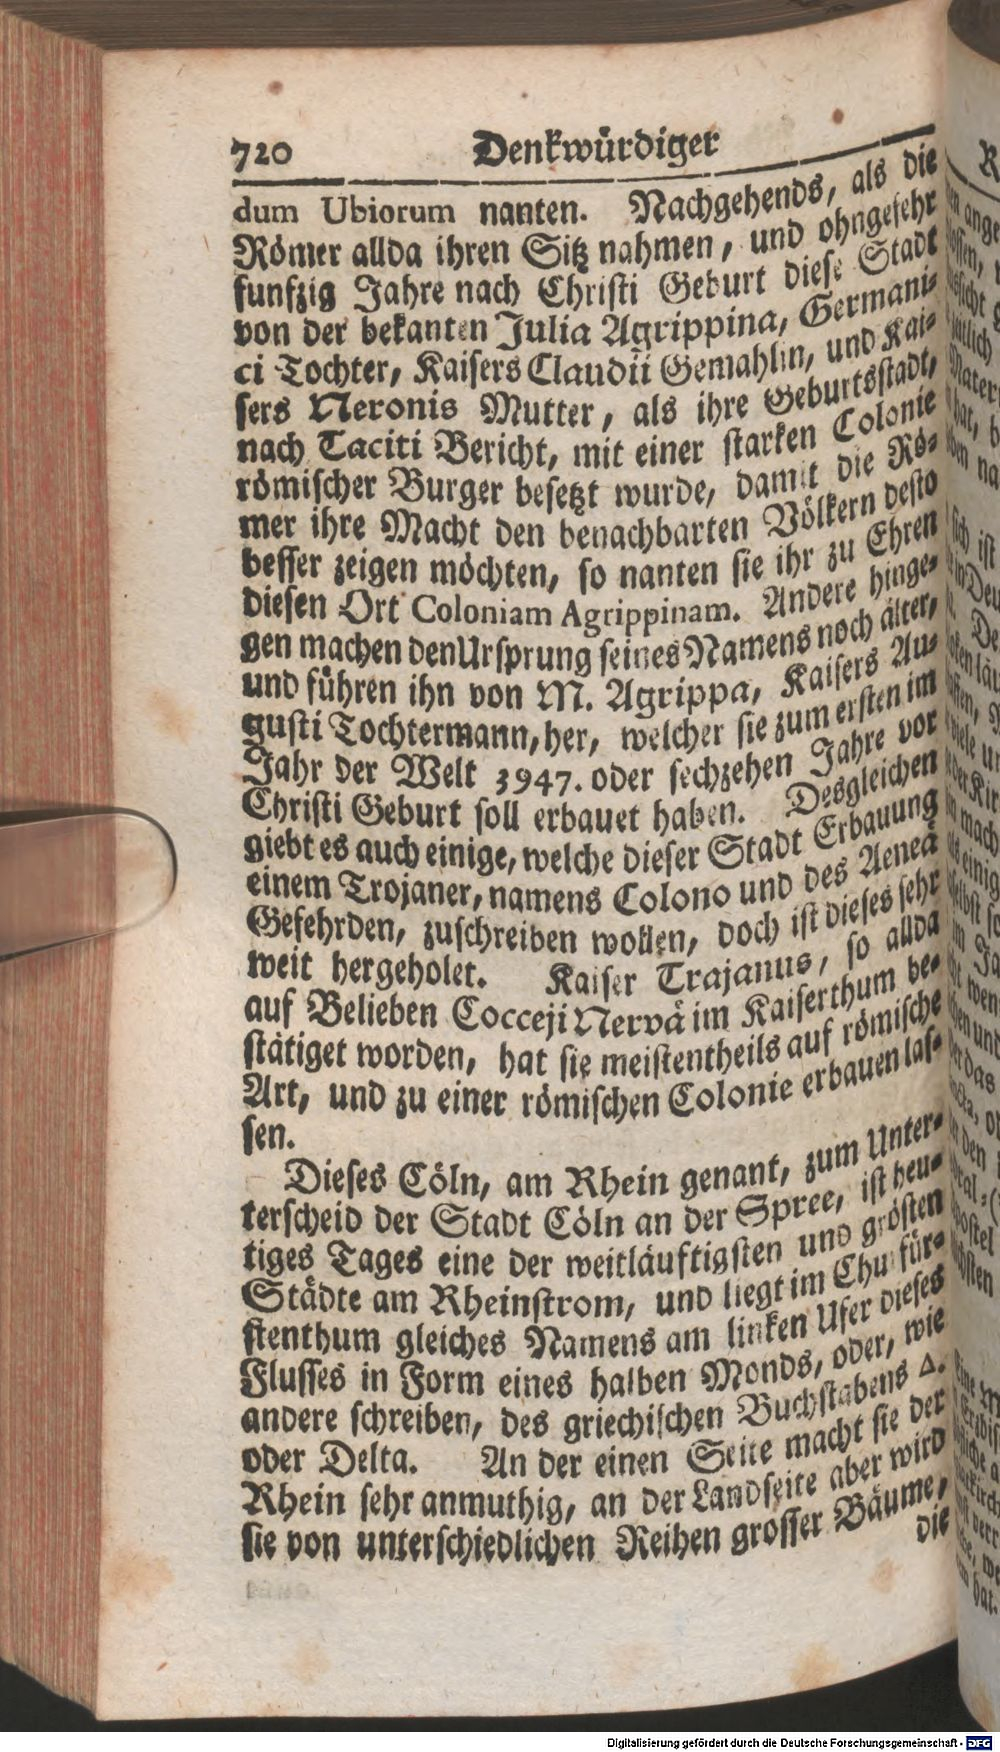 720 Denkwürdiger
dum Ubiorum nanten. Nachgehends, als die
Römer allda ihren Sitz nahmen, und ohngefehr
funfzig Jahre nach Christi Geburt diese Stadt
von der bekanten Julia Agrippina, Germani-
ci Tochter, Kaisers Claudii Gemahlin, und Kai-
sers Neronis Mutter, als ihre Geburtsstadt,
nach Taciti Bericht, mit einer starken Colonie
römischer Burger besetzt wurde, damit die Rö-
mer ihre Macht den benachbarten Völkern desto
besser zeigen möchten, so nanten sie ihr zu Ehren
diesen Ort Coloniam Agrippinam. Andere hinge-
gen machen den Ursprung seines Namens noch älter,
und führen ihn von M. Agrippa, Kaisers Au-
gusti Tochtermann, her, welcher sie zum ersten im
Jahr der Welt 3947. oder sechzehen Jahre vor
Christi Geburt soll erbauet haben. Desgleichen
giebt es auch einige, welche dieser Stadt Erbauung
einem Trojaner, namens Colono und des Aeneä
Gefehrden, zuschreiben wollen, doch ist dieses sehr
weit hergeholet. Kaiser Trajanus, so allda
auf Belieben Cocceji Nervä im Kaiserthum be-
stätiget worden, hat sie meistentheils auf römische
Art, und zu einer römischen Colonie erbauen las-
sen.
Dieses Cöln, am Rhein genant, zum Unter-
terscheid der Stadt Cöln an der Spree, ist heu-
tiges Tages eine der weitläuftigsten und grösten
Städte am Rheinstrom, und liegt im Chu für-
stenthum gleiches Namens am linken Ufer dieses
Flusses in Form eines halben Monds, oder, wie
andere schreiben, des griechischen Buchstabens Δ.
oder Delta. An der einen Seite macht sie der
Rhein sehr anmuthig, an der Landseite aber wird
sie von unterschiedlichen Reihen grosser Bäume,
die
Digitalisierung gefördert durch die Deutsche Forschungsgemeinschaft - DFG